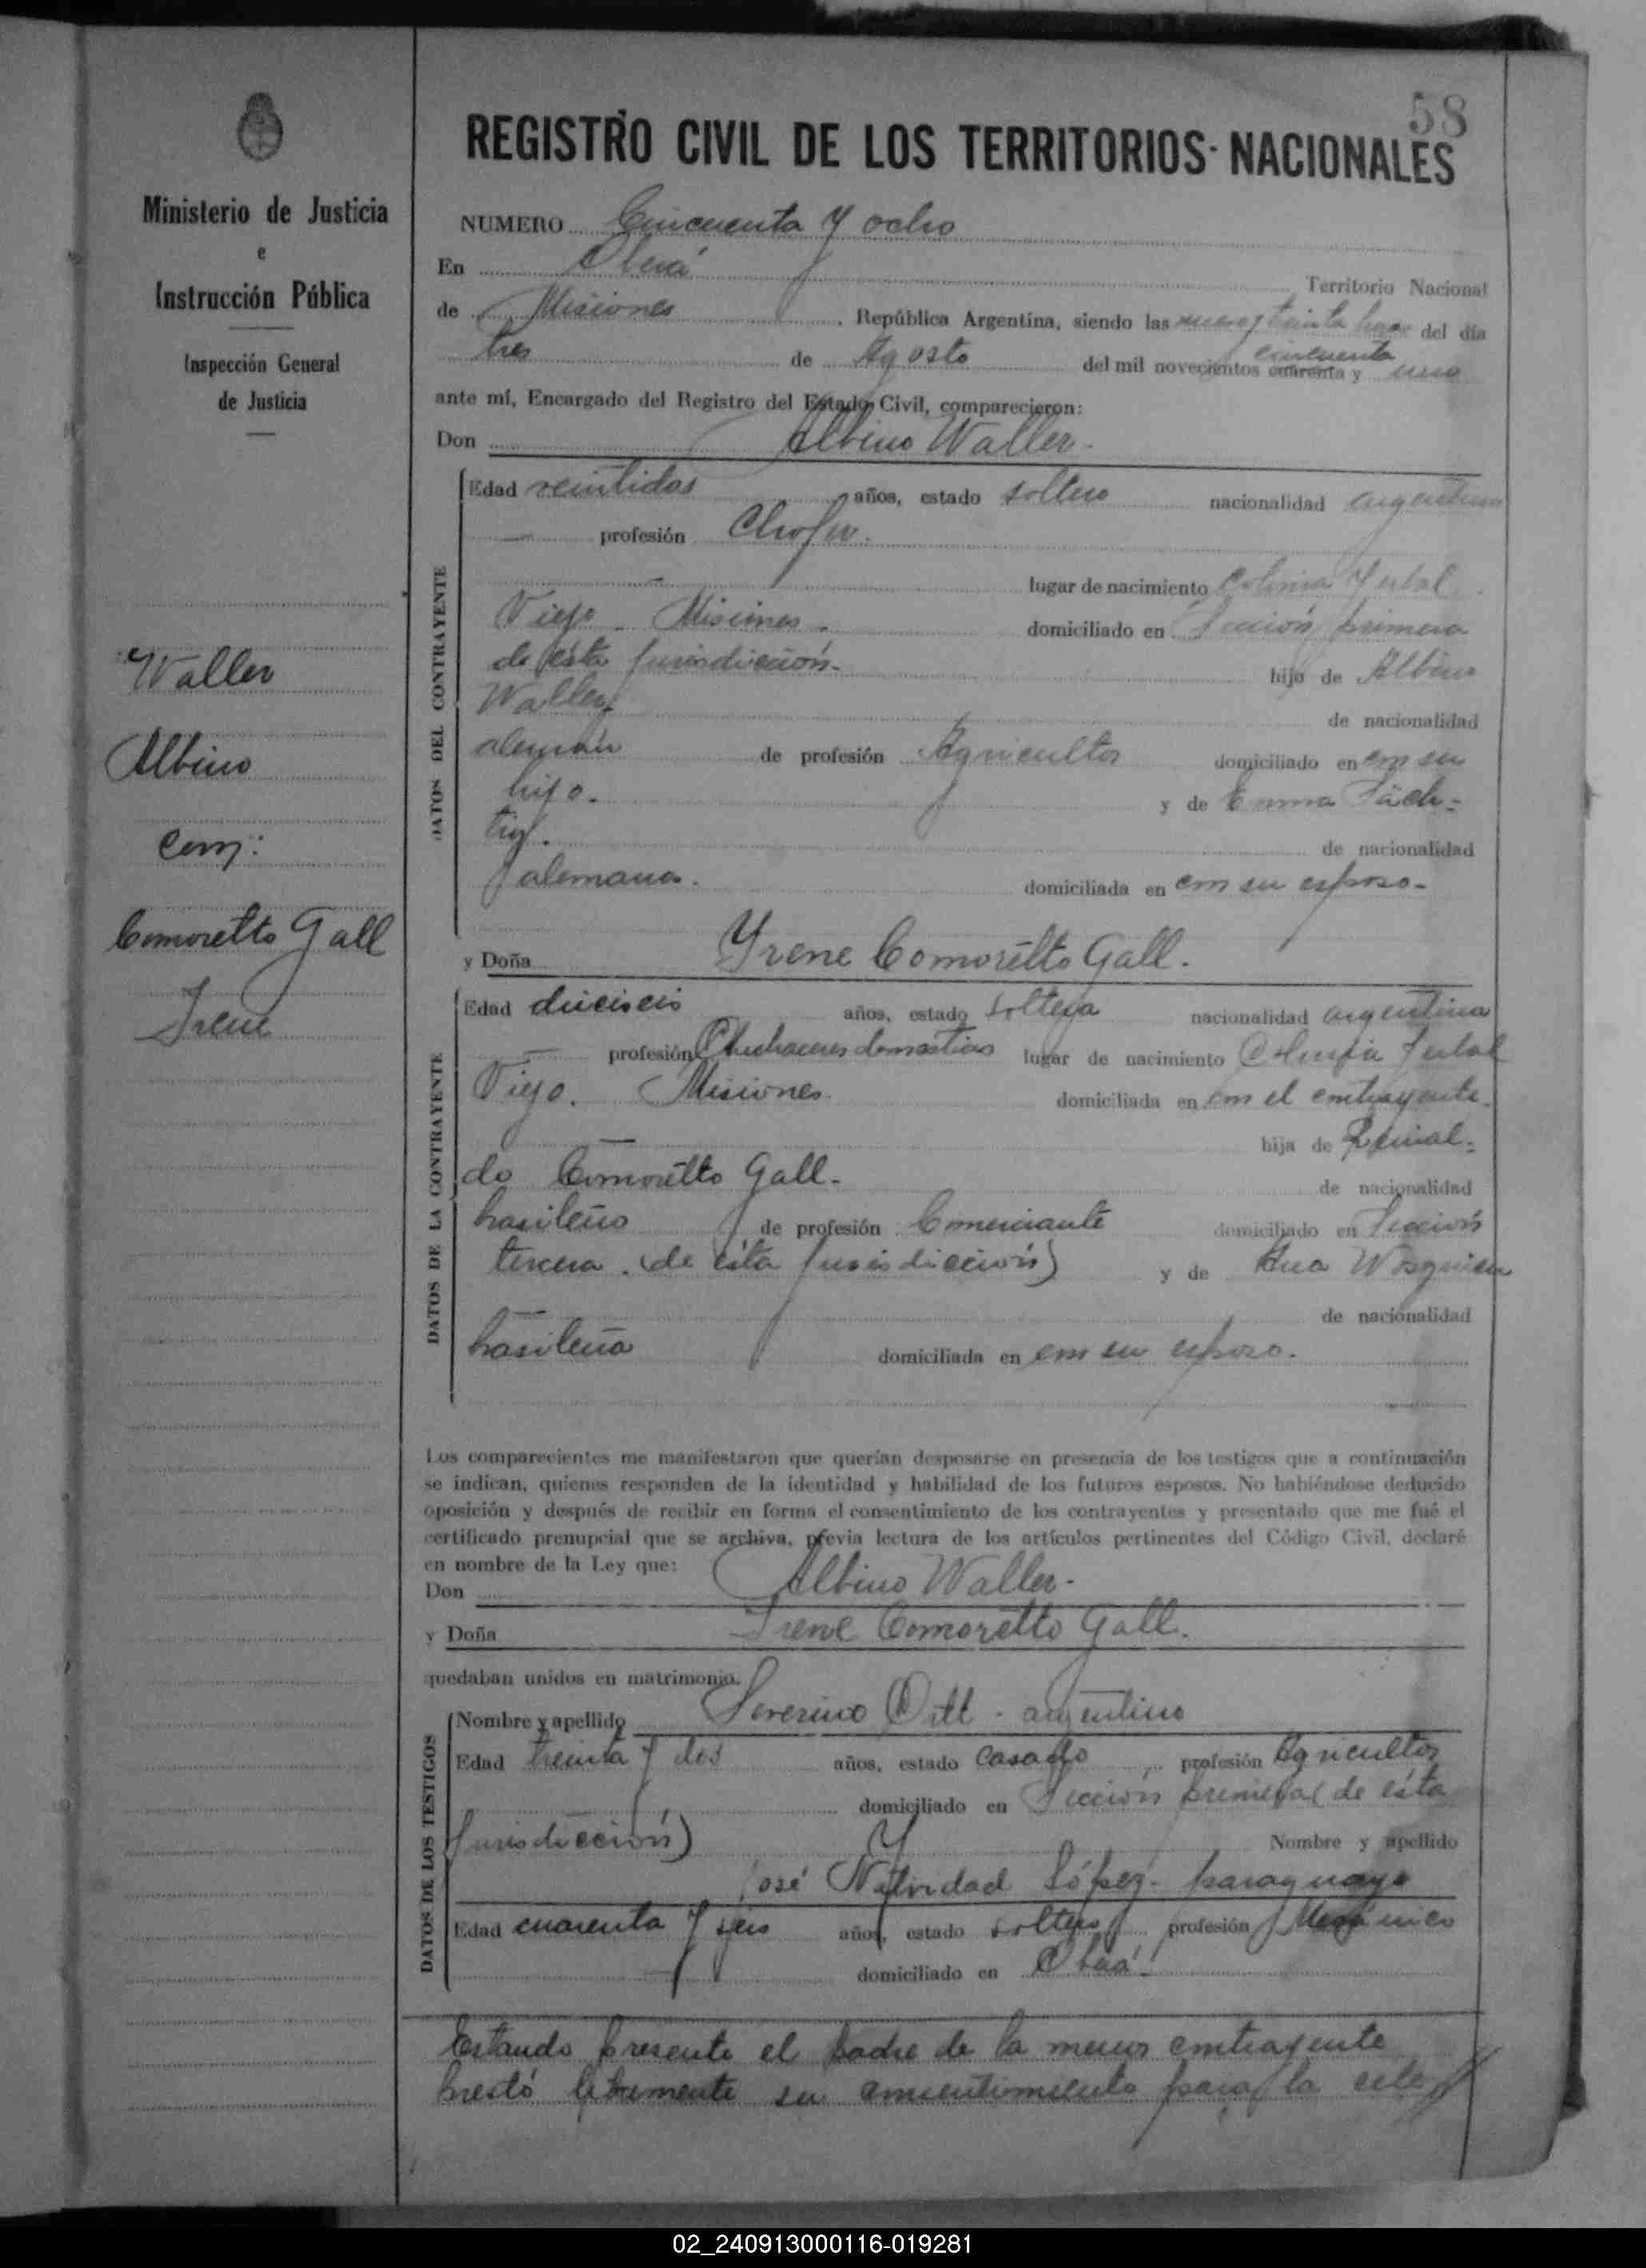 58
REGISTRO CIVIL DE LOS TERRITORIOS NACIONALES
Ministerio de Justicia
e
Instrucción Pública
Inspección General
de Justicia
Waller
Albino
con:
Comoretto Gall
Irene
NUMERO Cincuenta y ocho
En Oberá Territorio Nacional
de Misiones, República Argentina, siendo las nueve y treinta horas del día
tres de Agosto del mil novecientos cuarenta cincuenta y uno
ante mí, Encargado del Registro del Estado Civil, comparecieron:
Don Albino Waller.
DATOS DEL CONTRAYENTE
Edad veintidos años, estado soltero nacionalidad argentina
profesión Chofer.
lugar de nacimiento Colonia Yerbal
Viejo. Misiones. domiciliado en Sección primera
de ésta jurisdicción. hijo de Albino
Waller de nacionalidad
alemán de profesión Agricultor domiciliado en con su
hijo. y de Emma
de nacionalidad
alemana. domiciliada en con su esposo.
y Doña Yrene Comoretto Gall.
DATOS DE LA CONTRAYENTE
Edad dieciseis años, estado soltera nacionalidad argentina
profesión Quehaceres domésticos lugar de nacimiento Colonia Yerbal
Viejo. Misiones. domiciliada en con el contrayente.
hija de Reinal-
do Comoretto Gall. de nacionalidad
brasileño de profesión Comerciante domiciliado en Sección
tercera. (de ésta jurisdicción) y de Ana
de nacionalidad
brasileña domiciliada en con su esposo.
Los comparecientes me manifestaron que querían desposarse en presencia de los testigos que a continuación
se indican, quienes responden de la identidad y habilidad de los futuros esposos. No habiéndose deducido
oposición y después de recibir en forma el consentimiento de los contrayentes y presentado que me fué el
certificado prenupcial que se archiva, previa lectura de los artículos pertinentes del Código Civil, declaré
en nombre de la Ley que:
Don Albino Waller.
y Doña Irene Comoretto Gall.
quedaban unidos en matrimonio.
DATOS DE LOS TESTIGOS
Nombre y apellido Severino Ott - argentino
Edad treinta y dos años, estado casado, profesión Agricultor
domiciliado en Sección primera (de ésta
jurisdicción) y Nombre y apellido
José Natividad López - paraguayo
Edad cuarenta y seis años, estado soltero profesión Mecánico
domiciliado en Oberá.
Estando presente el padre de la menor contrayente
prestó libremente su consentimiento para la cele
02_240913000116-019281